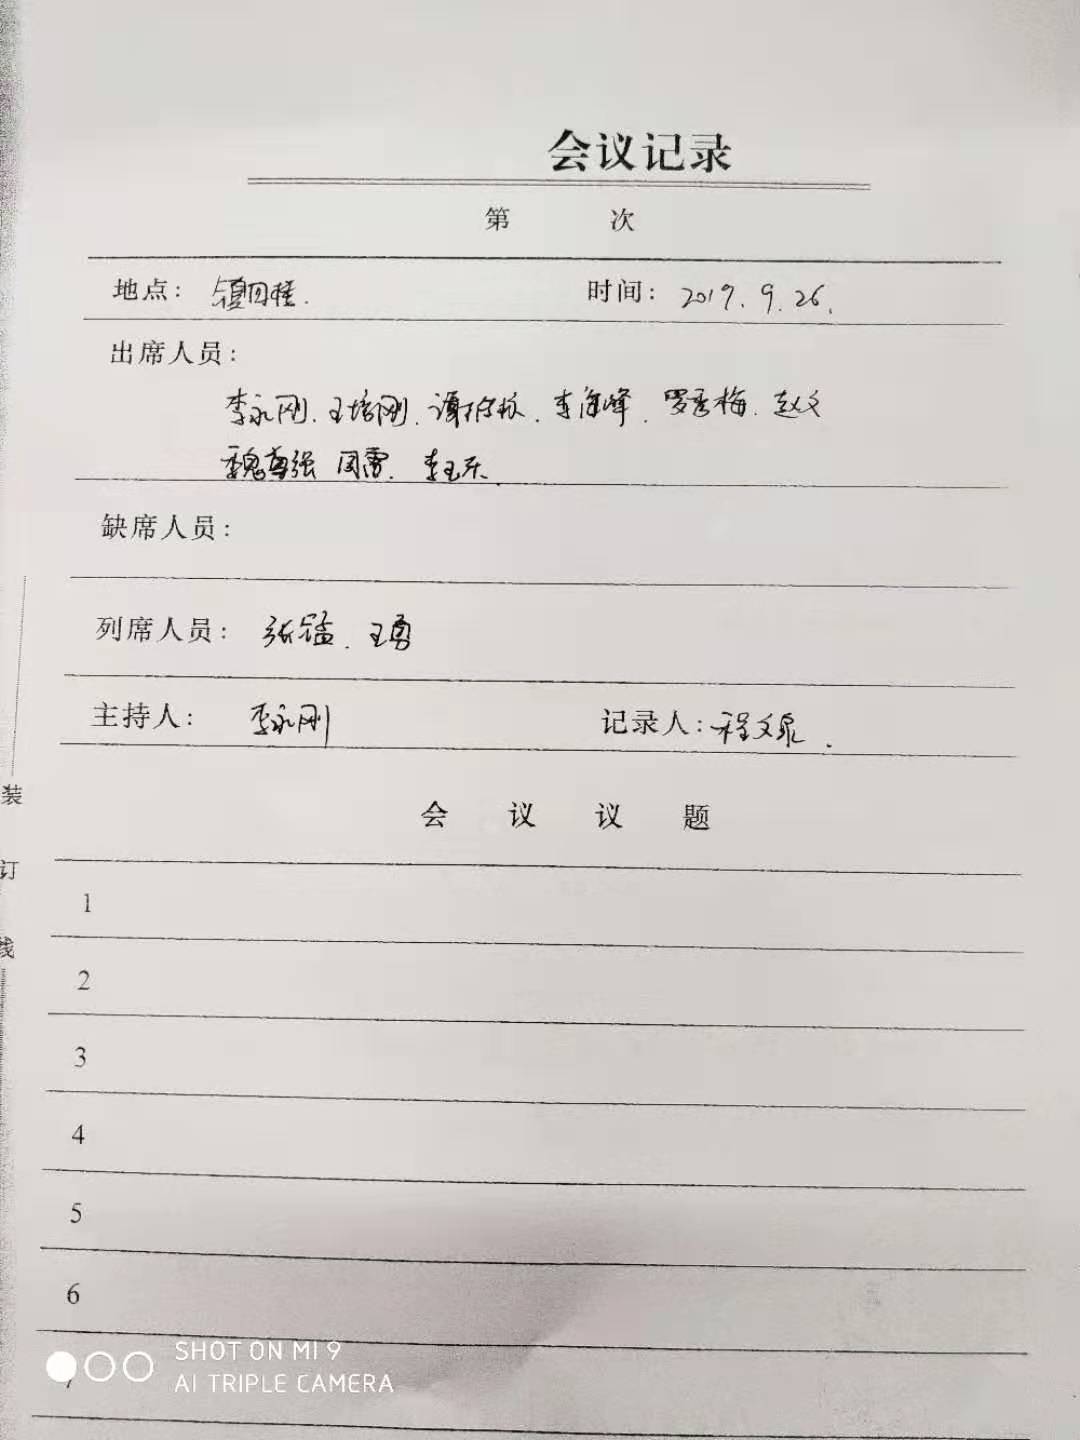 会议记录
第 次
地点： 时间：2019.9.26.
出席人员：
李永刚、王培刚、李海峰、罗秀梅、赵文
李玉东
缺席人员：
列席人员：张猛、王勇
主持人：李永刚 记录人：程文泉
会 议 议 题
1
2
3
4
5
6
7
装
订
线
SHOT ON MI 9
AI TRIPLE CAMERA